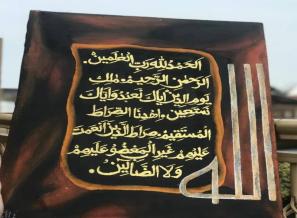 الحمد لله رب العلمين.
الرحمن الرحيم. ملك
يوم الدين اياك نعبد واياك
نستعين. اهدنا الصراط
المستقيم صراط الذين انعمت
عليهم غير المغضوب عليهم
ولا الضالين.
الله